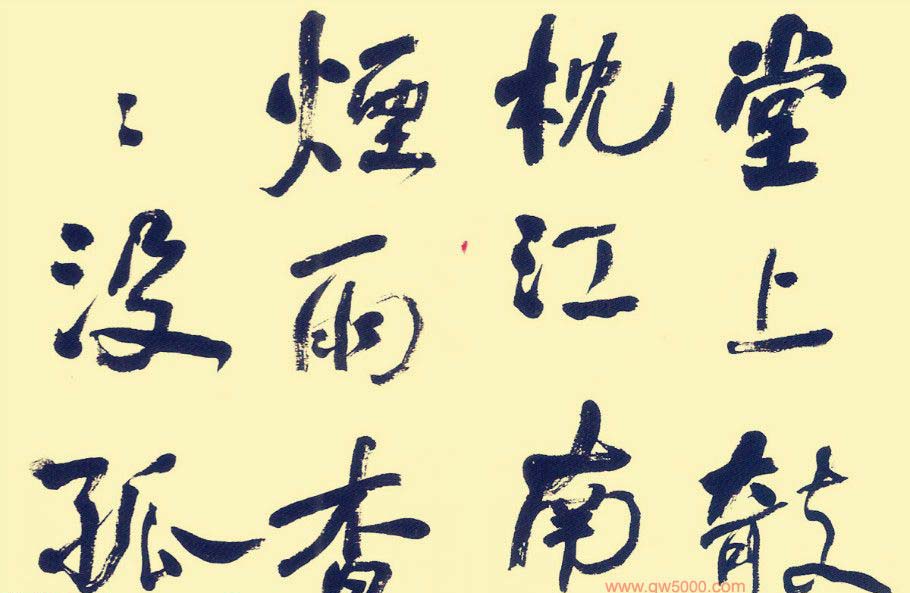 堂上敧
枕江南
煙雨杳
〻没孤
www.qw5000.com